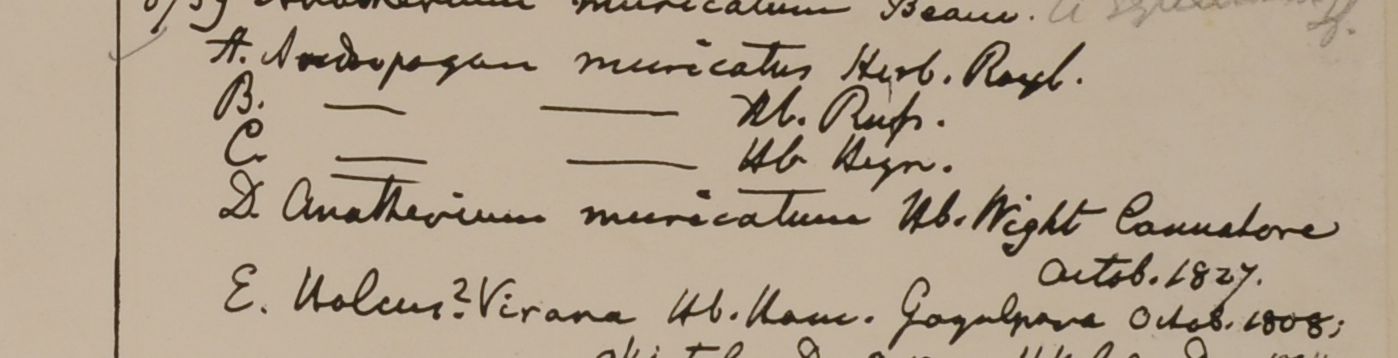 Anatherium muricatum Beauv.
A. Andropogon muricatus Herb. Royl.
B. — — Hb. Rufs.
C. — — Hb Heyn.
D. Anatherium muricatum Hb. Wight Cannatore
Octob. 1827.
E. Holcus? Virana Hb. Ham. Goyalpara Octob. 1808;